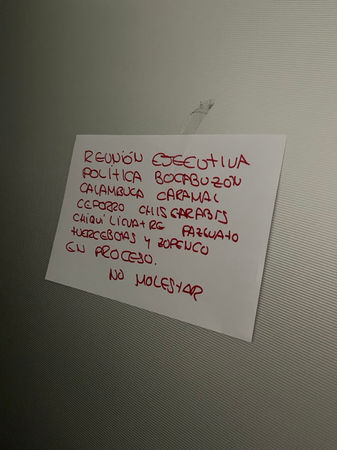 REUNIÓN EJECUTIVA
POLÍTICA BOCABUZÓN
CALAMBUCA CARAMAL
CEPORRO CHISGARABIS
CHIQUILICUATRE PAZGUATO
TUERCEBOTAS Y ZOPENCO
EN PROCESO.
NO MOLESTAR